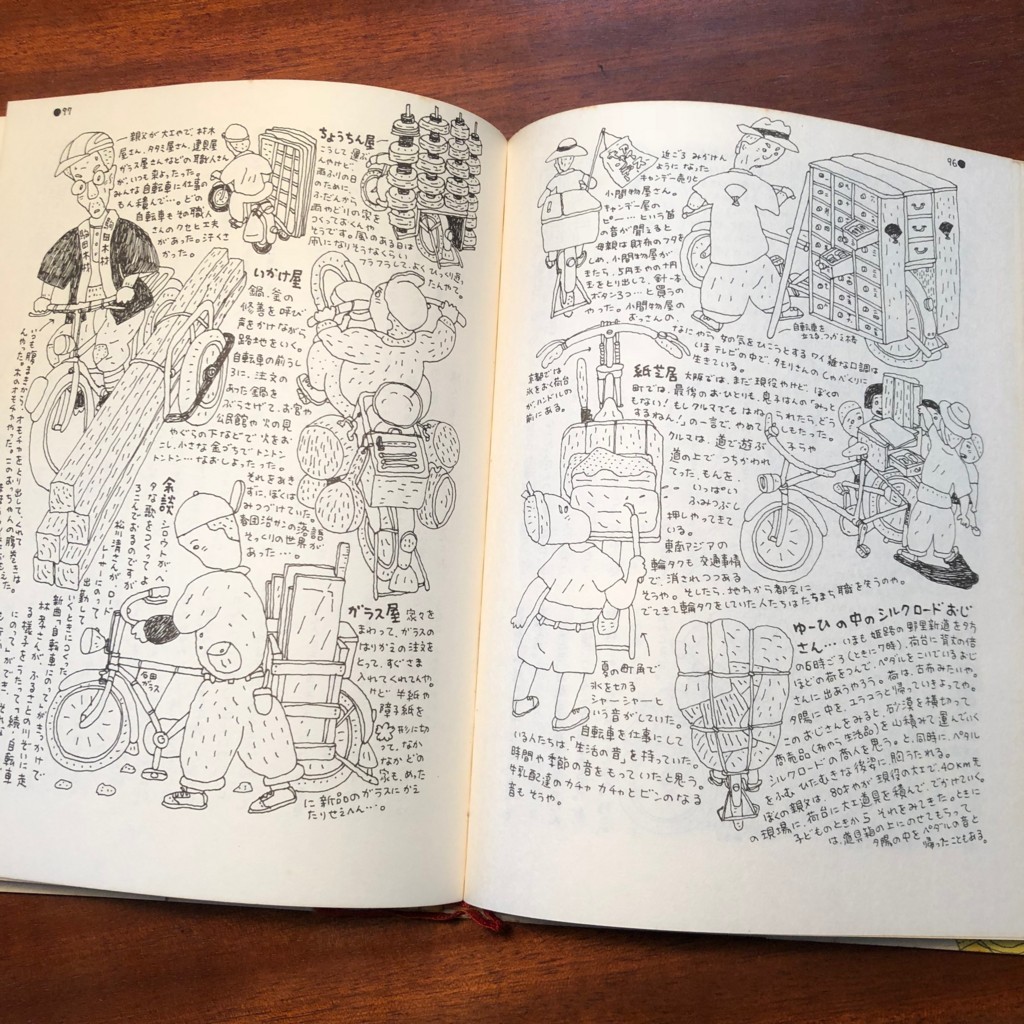 96●
近ごろ みかけん
ようになった
キャンデー売りと
小間物屋さん。
キャンデー屋の
ピー…という笛
の音が聞えると
母親は財布のフタを
しめ、小間物屋が
きたら、5円玉や の十円
玉をとり出して、針一本
ボタン3つ…と買うの
やった。小間物屋の
おっさんの
なにやら女の気をひこうとする
口調は
いまテレビの中で、タモリさんのしゃべくりに
生きている。
自転車を
京都では
氷をおく荷台
が、ハンドルの
前にある。
紙芝居
大阪では、まだ現役やけど、ぼくの
町では、最後のおひとりも、息子はんの「みっと
もない!もしクルマでもはねられたら、どう
するねん!」の一言で、やめてしもたった。
クルマは、道で遊ぶ 子らや
道の上で つちかわれ
てった もんを、
いっぱい
ふみつぶし
押しやってきて
いる。
東南アジアの
輪タクも 交通事情
で、消されつつある
そうや。そしたら、地方から都会に
でてきて輪タクをしていた人たちはたちまち職を失うのや。
夏の町角で
氷を切る
シャーシャーと
いう音がしていた。
自転車を仕事にして
いる人たちは、「生活の音」を持っていた。
時間や季節の音をもっていたと思う。
牛乳配達のカチャカチャとビンのなる
音もそうや。
ゆーひの中のシルクロードおじ
さん…
いまも姫路の野里新道を夕方
の6時ごろ(ときに7時)、荷台に背丈の倍
ほどの荷をつんで、ペダルをこいでいるおじ
さんに出あうやろう。荷は、古布みたいや。
夕陽に中を、ユラユラと帰っていきよってや。
このおじさんをみると、砂漠を横切って
商売品(布やら生活品)を山積みで運んでいく
シルクロードの商人を思う。と、同時に、ペダル
をふむ ひたむきな後姿に、胸うたれる。
ぼくの親父は、80才やが現役の大工で、40km先
の現場に、荷台に大工道具を積んで、でかせていく。
子どものときから それをみてきた。ときに
は、道具箱の上にのせてもらって
夕陽の中をペダルの音と
帰ったこともある。
●97
一親父が大工やので、材木
屋さん、タタミ屋さん、建具屋
ガラス屋さんなどの職人さん
がいつも来よったった。
みんな自転車に仕事の
もん積んで…。どの
自転車もその職人
さんのクセと工夫
があった。汗くさ
かった。
ちょうちん屋
こうして運ぶ
んやけど
雨ふりの日
のために、
ふだんから
雨やどりの家を
つくっておくんや
そうです。風のある日は
凧になりそうなくらい
フラフラして、よくひっくり返っ
たんやて。
いかけ屋
鍋、釜の
修善を呼び
声をかけながら
路地をいく。
自転車の前うし
ろに、注文の
あった鍋を
ぶらさげて、お宮や
公民館や火の見
やぐらの下などで火をお
こし、小さな金づちでトントン
トントン…なおしよったった。
それをあき
ずに、ぼくは
みつづけていた。
春団治サンの落語
そっくりの世界が
あった…。
余談
シロウトが、ヘ
タな歌をつくってよ
ろこんでおるのですが
松川清さんが、ロード
レーサーにのって
出勤して
いくときにつくった
新曲「自転車にのって」がきっかけで
林孝さんが、ふるさとの川ぞいに走
る様子をうたって続、自転車
にのって」ができ、
石田
ガラス
ガラス屋
家々を
まわって、ガラスの
はりかえの注文を
とって、すぐさま
入れてくれてんや。
けど 半紙や
障子紙を
形に切
って、なか
なかどの
家も、めった
に新品のガラスにかえ
たりせえへん…。